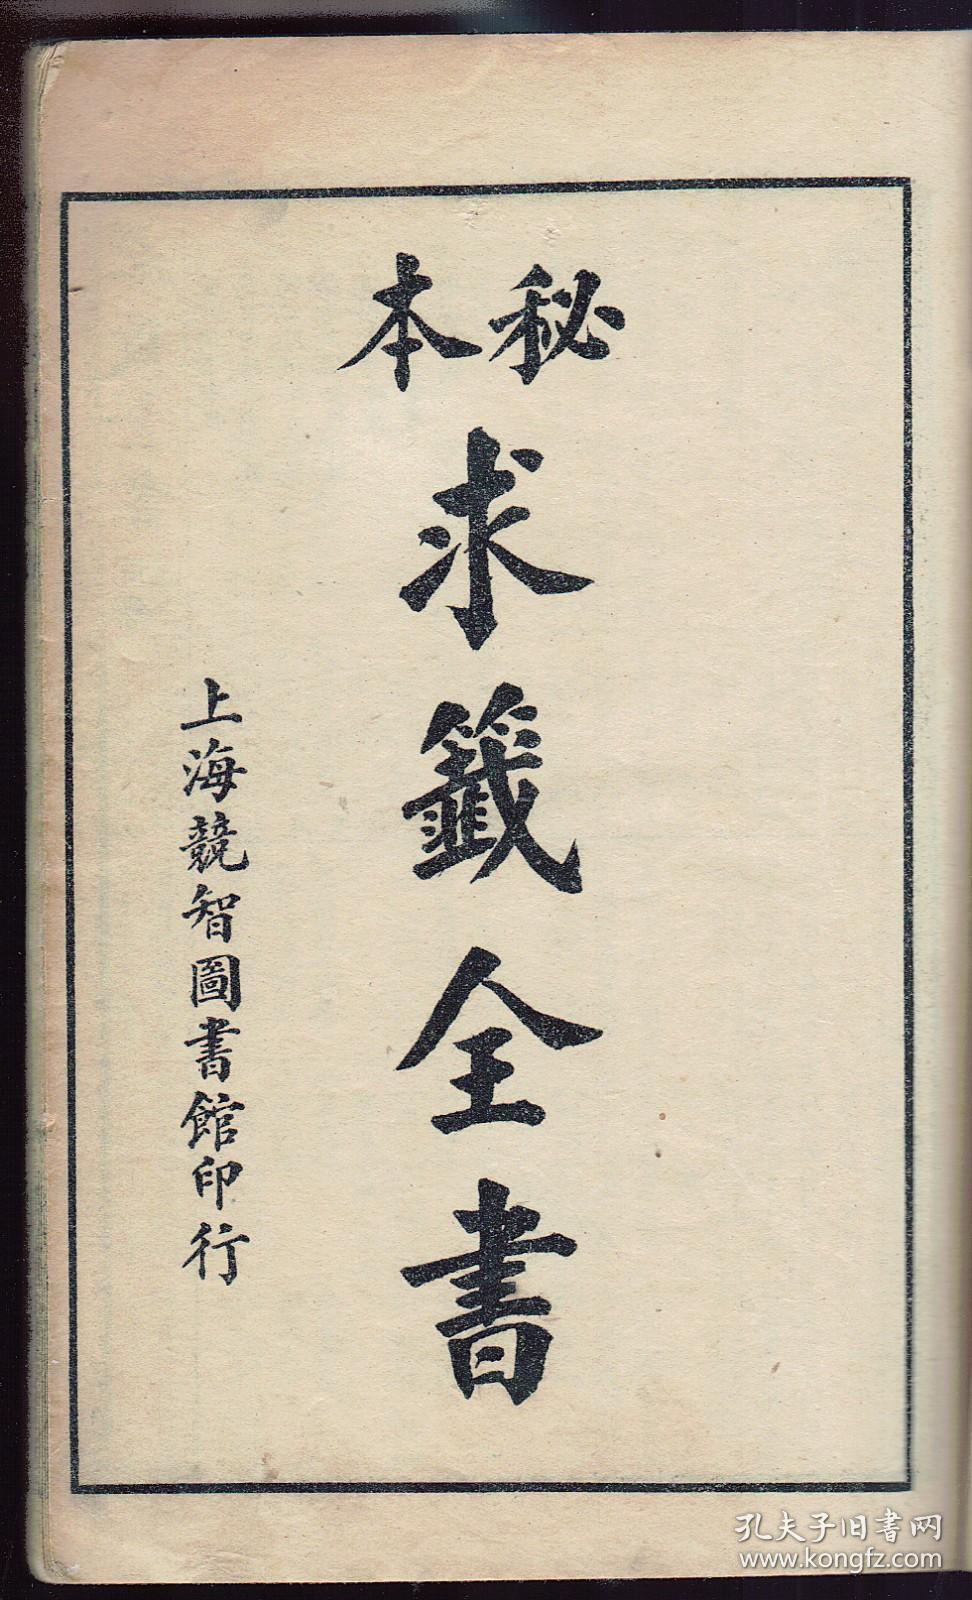 秘本
求籤全書
上海競智圖書館印行
孔夫子旧书网
www.kongfz.com